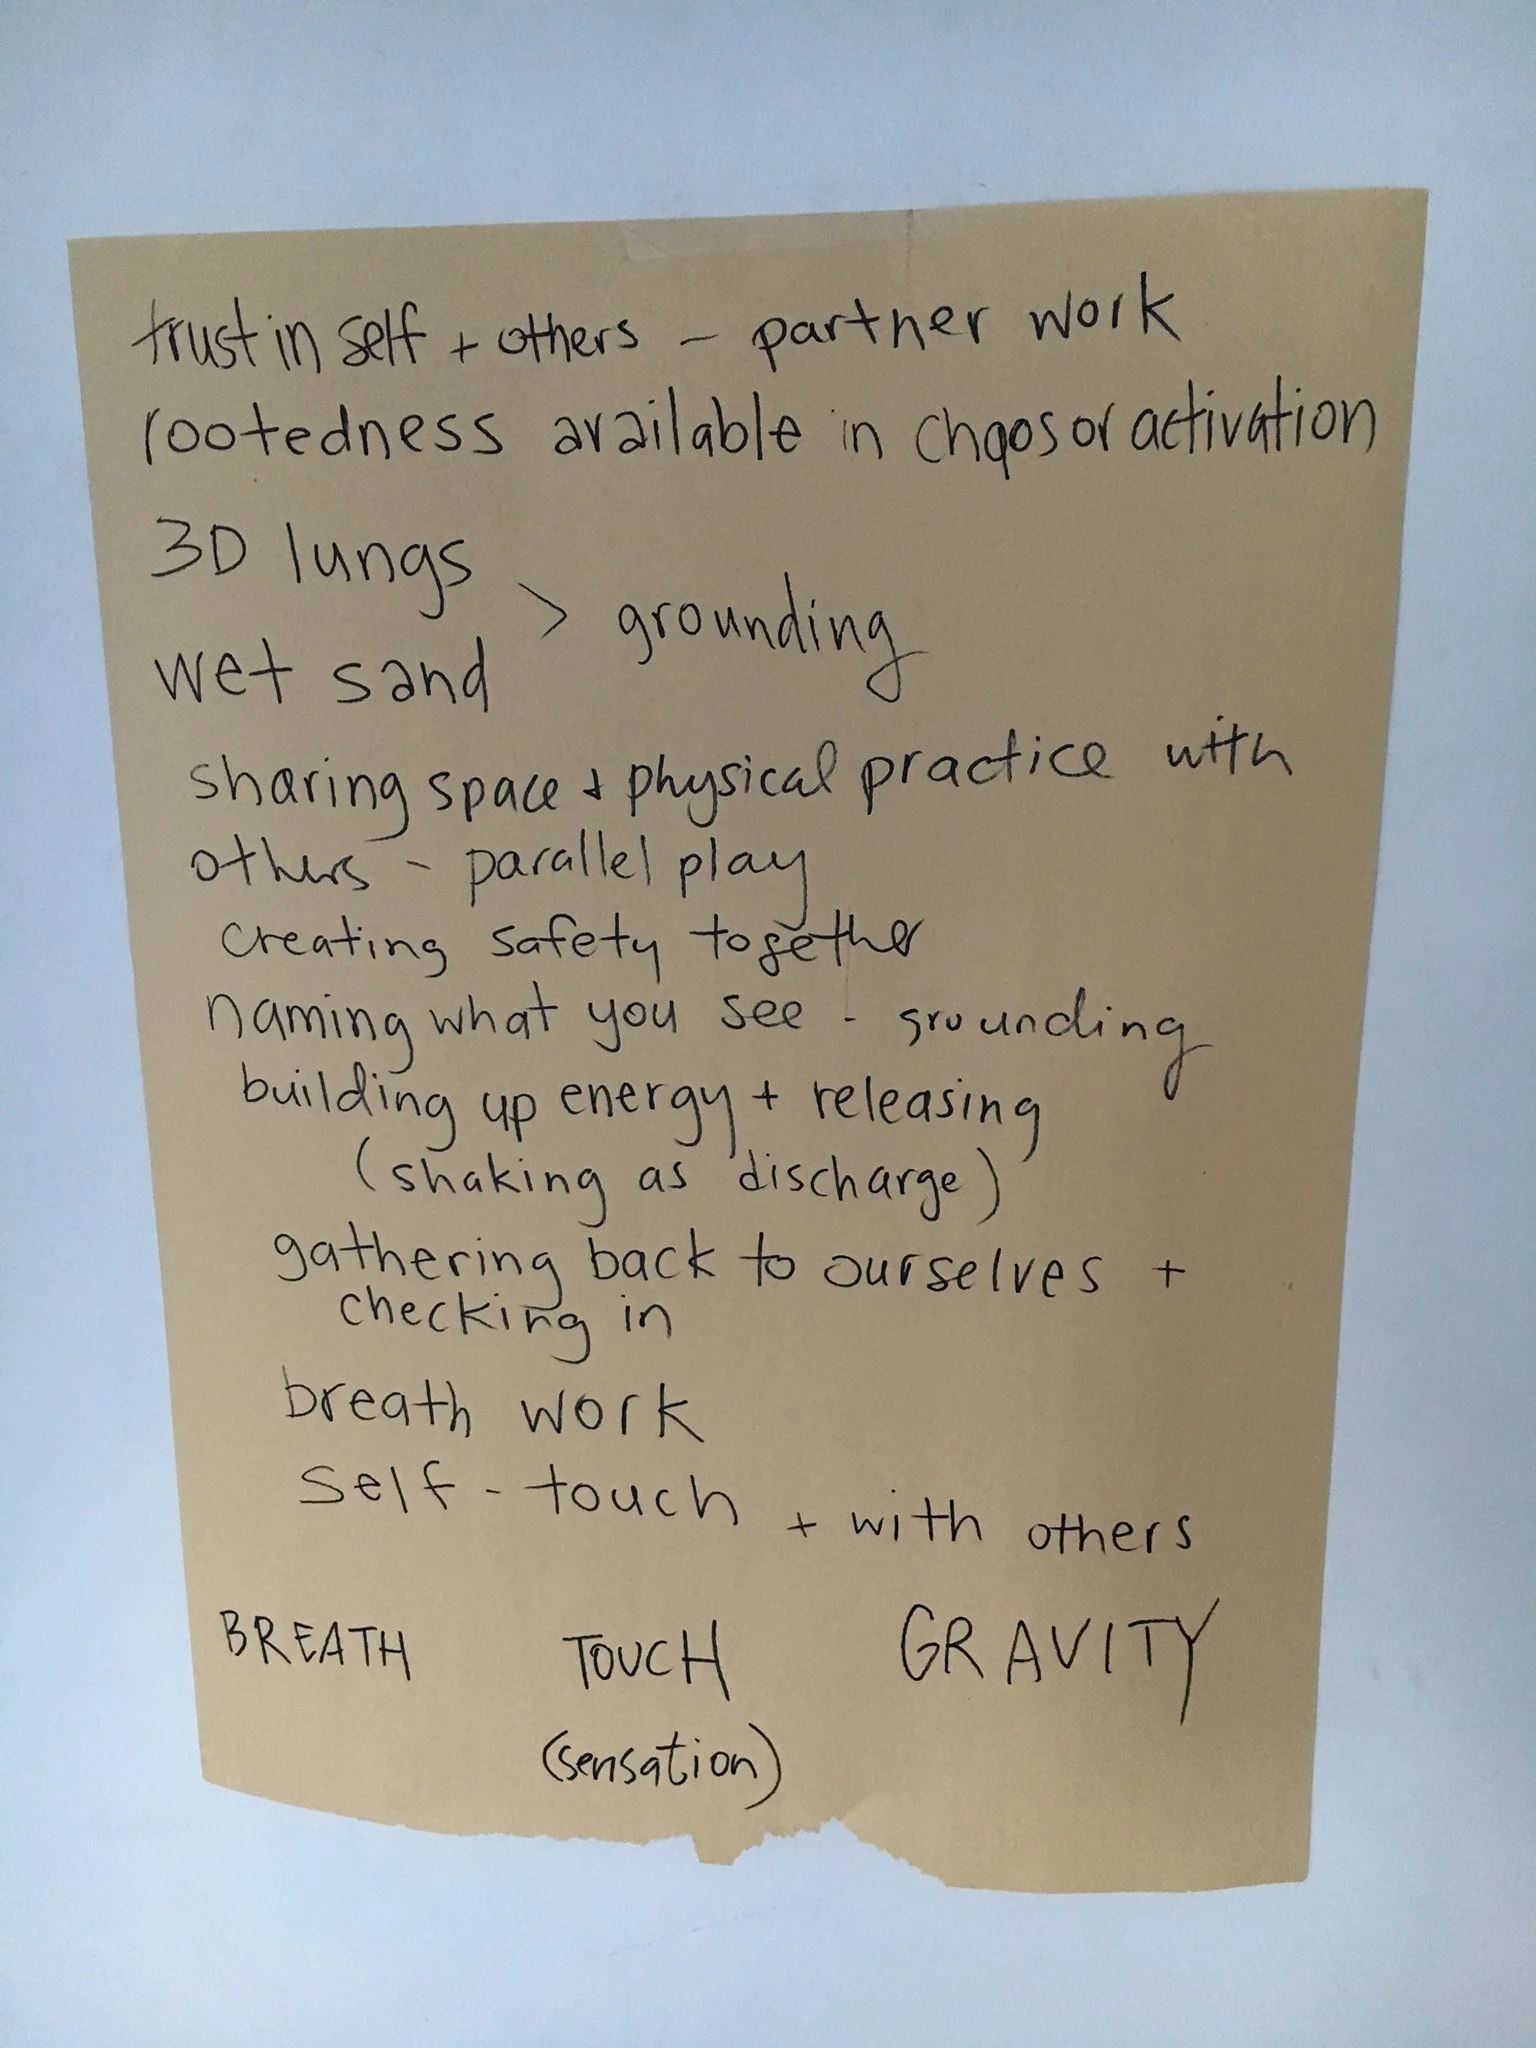 trust in self + others - partner work
rootedness available in chaos or activation
3D lungs
> grounding
wet sand
sharing space + physical practice with
others - parallel play
creating safety together
naming what you see - grounding
building up energy + releasing
(shaking as discharge)
gathering back to ourselves +
checking in
breath work
self - touch + with others
BREATH TOUCH GRAVITY
(sensation)